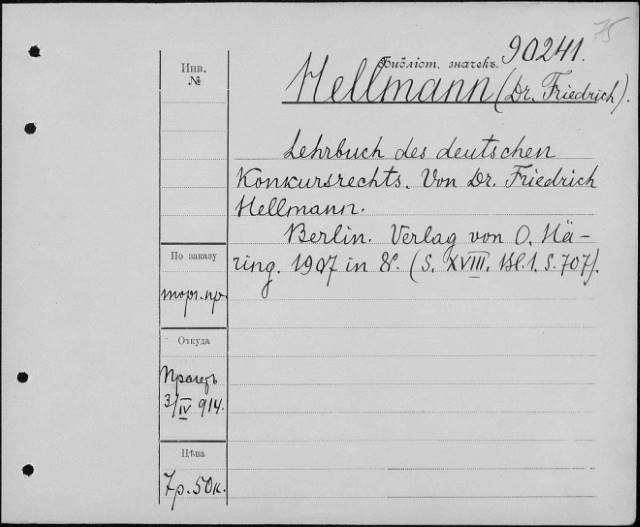 75
Библіот. значекъ. 90241.
Инв.
№
Hellmann (Dr. Friedrich).
Lehrbuch des deutschen
Konkursrechts. Von Dr. Friedrich
Hellmann.
Berlin. Verlag von O. Hä-
ring. 1907 in 8°. (S. XVIII. Bl. 1. S. 707).
По заказу
торг. пр.
Откуда
3/IV 914.
Цѣна
7р. 50к.